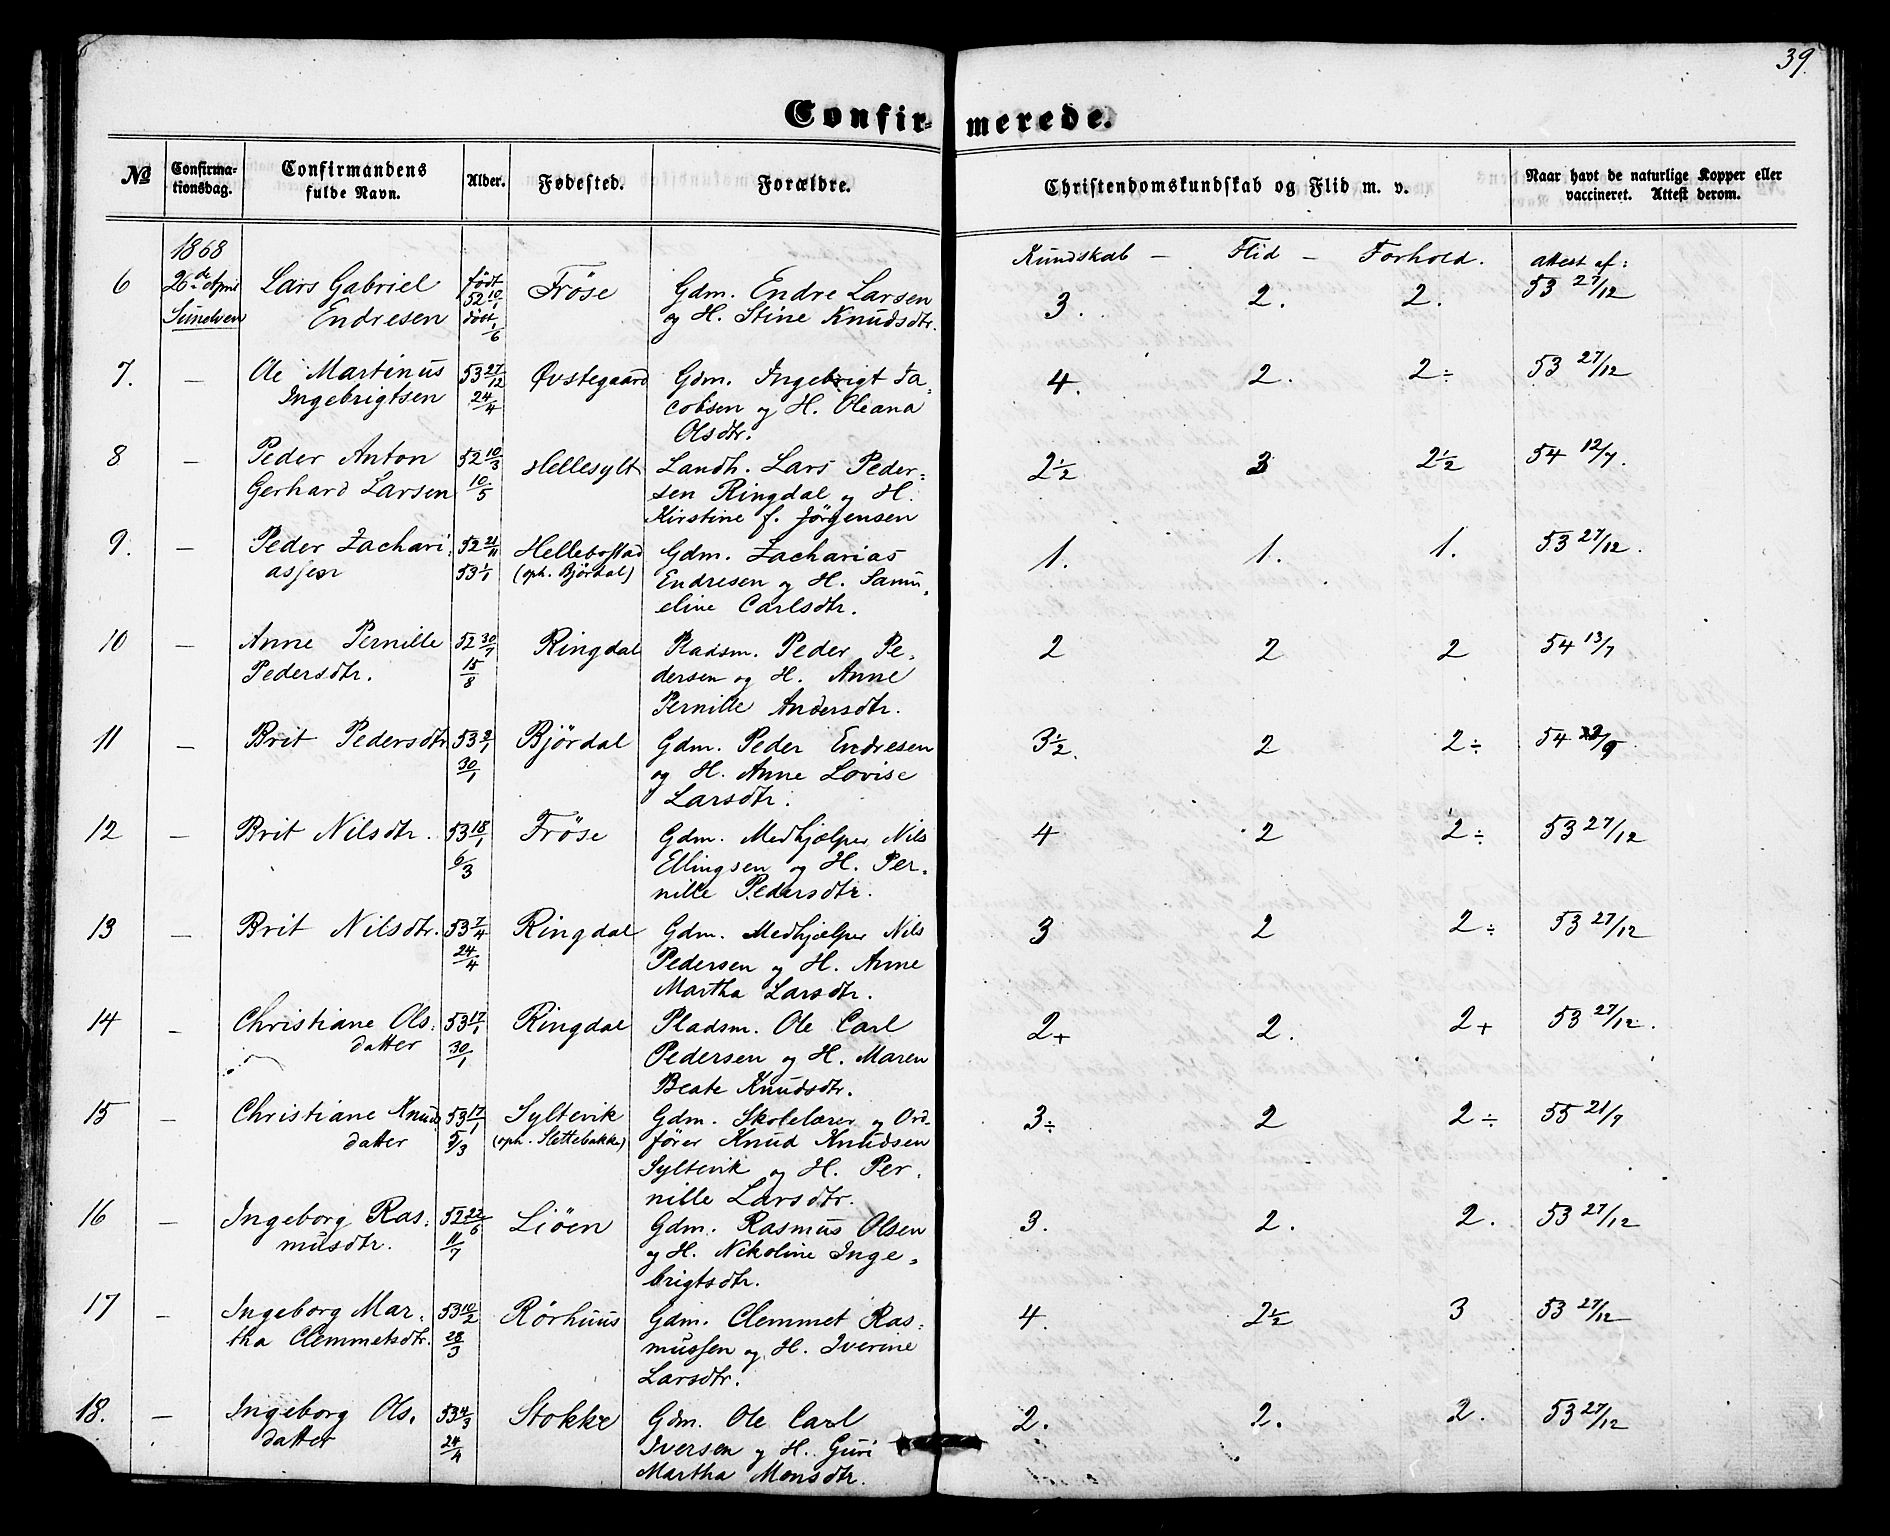 39.
Confirmerede.
No
Confirmationsdag.
Confirmandens fulde Navn.
Alder.
Fødested.
Forældre.
Christendomskundskab og Flid m. v.
Naar havt de naturlige Kopper eller vaccineret. Attest derom.
1868 Kundskab – Flid – Forhold. Attest af:
6 26de April Lars Gabriel født 52 10/1 Fröse Gdm. Endre Larsen 3. 2. 2. 53 27/12
Sunelven Endresen døbt 1/6 og H. Stine Knudsdtr.
7. – Ole Martinus 53 27/12 Øvstegaard Gdm. Ingebrigt Ja- 4. 2. 2÷ 53 27/12
Ingebrigtsen 24/4 cobsen og H. Oleana
Olsdtr.
8 – Peder Anton 52 10/3 Hellesylt Landh. Lars Peder- 2½ 3 2½ 54 12/7.
Gerhard Larsen 10/5 sen Ringdal og H.
Kirstine f. Jörgensen
9. – Peder Zachari- 52 21/11 Hellebostad Gdm. Zacharias 1. 1. 1. 53 27/12.
assen 53 1/1 (oph. Bjørdal) Endresen og H. Samu-
eline Carlsdtr.
10 – Anne Pernille 52 30/7 Ringdal Pladsm. Peder Pe- 2 2 2 54 13/7
Pedersdtr. 15/8 dersen og H. Anne
Pernille Andersdtr.
11 – Brit Pedersdtr 53 2/1 Björdal Gdm. Peder Endresen 3½. 2 2÷ 54
30/1 og H. Anne Lovise
Larsdtr.
12 – Brit Nilsdtr. 53 18/1 Fröse Gdm. Medhjælper Nils 4 2 2÷ 53 27/12
6/3 Ellingsen og H. Per-
nille Pedersdtr.
13 – Brit Nilsdtr. 53 7/4 Ringdal Gdm. Medhjælper Nils 3 2 2÷ 53 27/12
24/4 Pedersen og H. Anne
Martha Larsdtr.
14 – Christiane Ols- 53 17/1 Ringdal Pladsm. Ole Carl 2+ 2. 2+ 53 27/12.
datter 30/1 Pedersen og H. Maren
Beate Knudsdtr.
15 – Christiane Knuds 53 17/1 Syltevik Gdm. Skolelærer og Ord- 3÷ 2 2÷ 55 21/9
datter 5/3 (oph. Slettebakke) förer Knud Knudsen
Syltevik og H. Per-
nille Larsdtr.
16 – Ingeborg Ras- 52 22/6 Liöen Gdm. Rasmus Olsen 3. 2. 2. 53 27/12
musdtr. 11/7 og H. Nikoline Inge-
brigtsdtr.
17 – Ingeborg Mar- 53 10/2 Rørhuus Gdm. Clemmet Ras- 4. 2½ 3 53 27/12
tha Clemmetsdtr. 28/3 mussen og H. Iverine
Larsdtr.
18. – Ingeborg Ols- 53 4/3 Stokke Gdm. Ole Carl 2. 2. 2. 53 27/12
datter 24/4 Iversen og H. Guri
Martha Monsdtr.